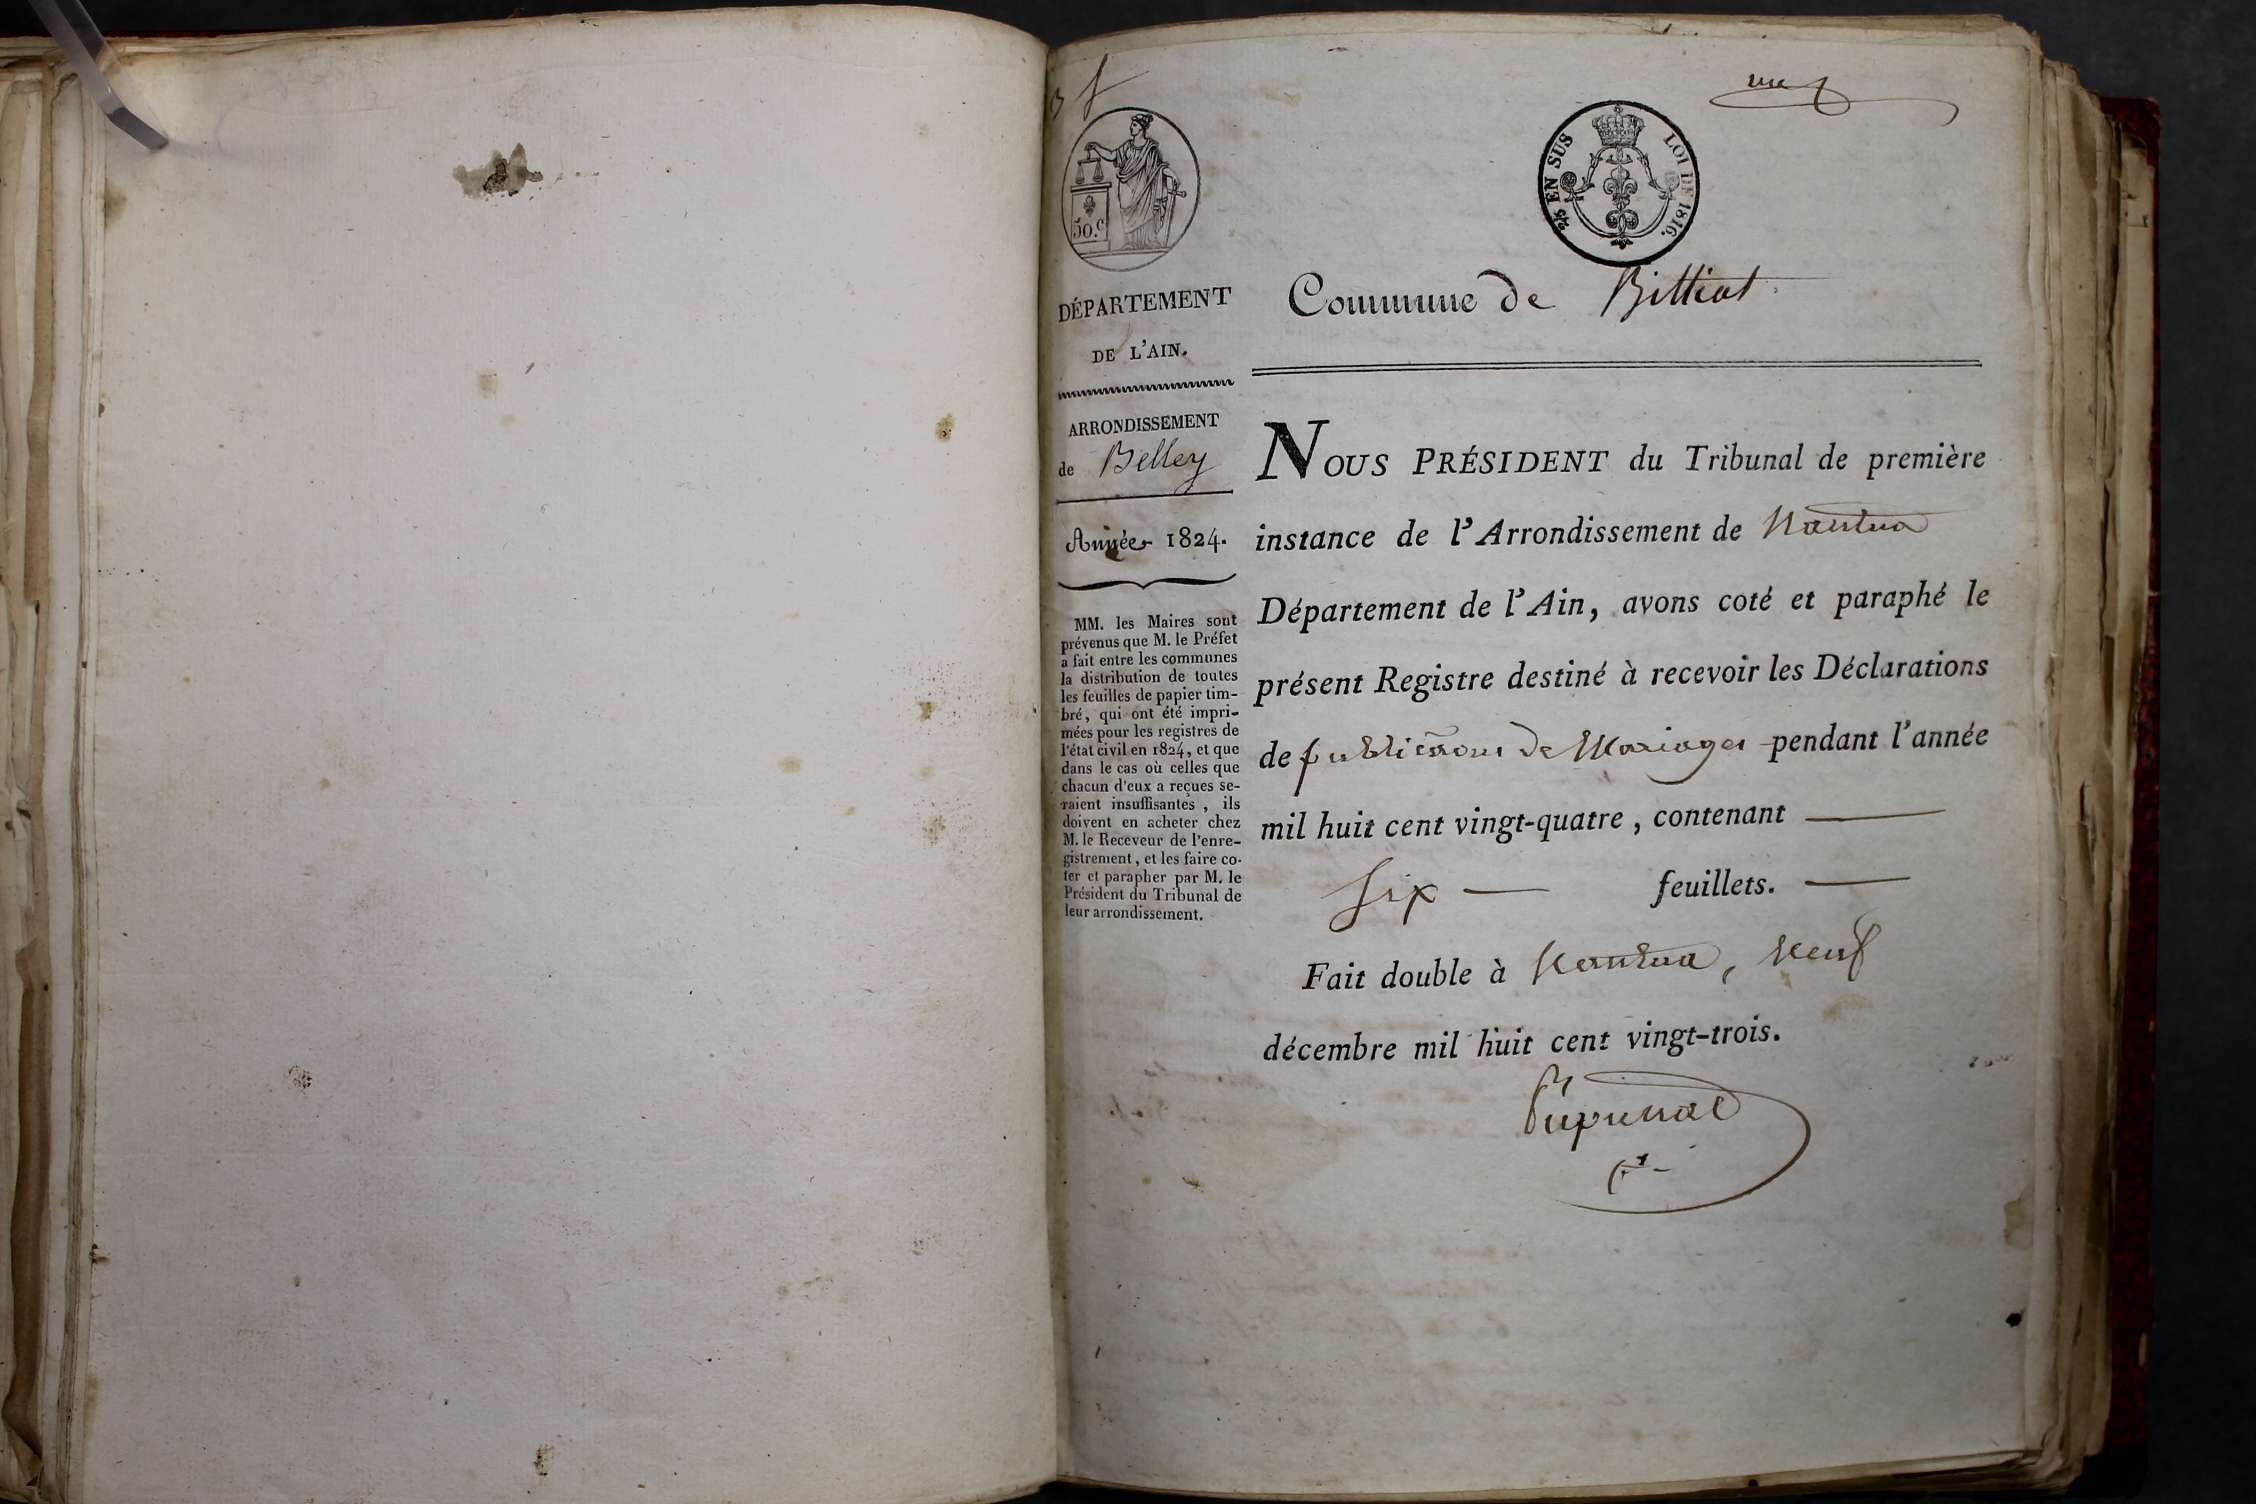 50.c
2/5 EN SUS LOI DE 1816.
DÉPARTEMENT
DE L'AIN.
ARRONDISSEMENT
de Belley
Année 1824.
MM. les Maires sont
prévenus que M. le Préfet
a fait entre les communes
la distribution de toutes
les feuilles de papier tim-
bré, qui ont été impri-
mées pour les registres de
l'état civil en 1824, et que
dans le cas où celles que
chacun d'eux a reçues se-
raient insuffisantes, ils
doivent en acheter chez
M. le Receveur de l'enre-
gistrement, et les faire co-
ter et parapher par M. le
Président du Tribunal de
leur arrondissement.
Commune de Billiat
NOUS PRÉSIDENT du Tribunal de première
instance de l'Arrondissement de Nantua
Département de l'Ain, avons coté et paraphé le
présent Registre destiné à recevoir les Déclarations
de publications de Mariages pendant l'année
mil huit cent vingt-quatre, contenant
six feuillets.
Fait double à Nantua, neuf
décembre mil huit cent vingt-trois.